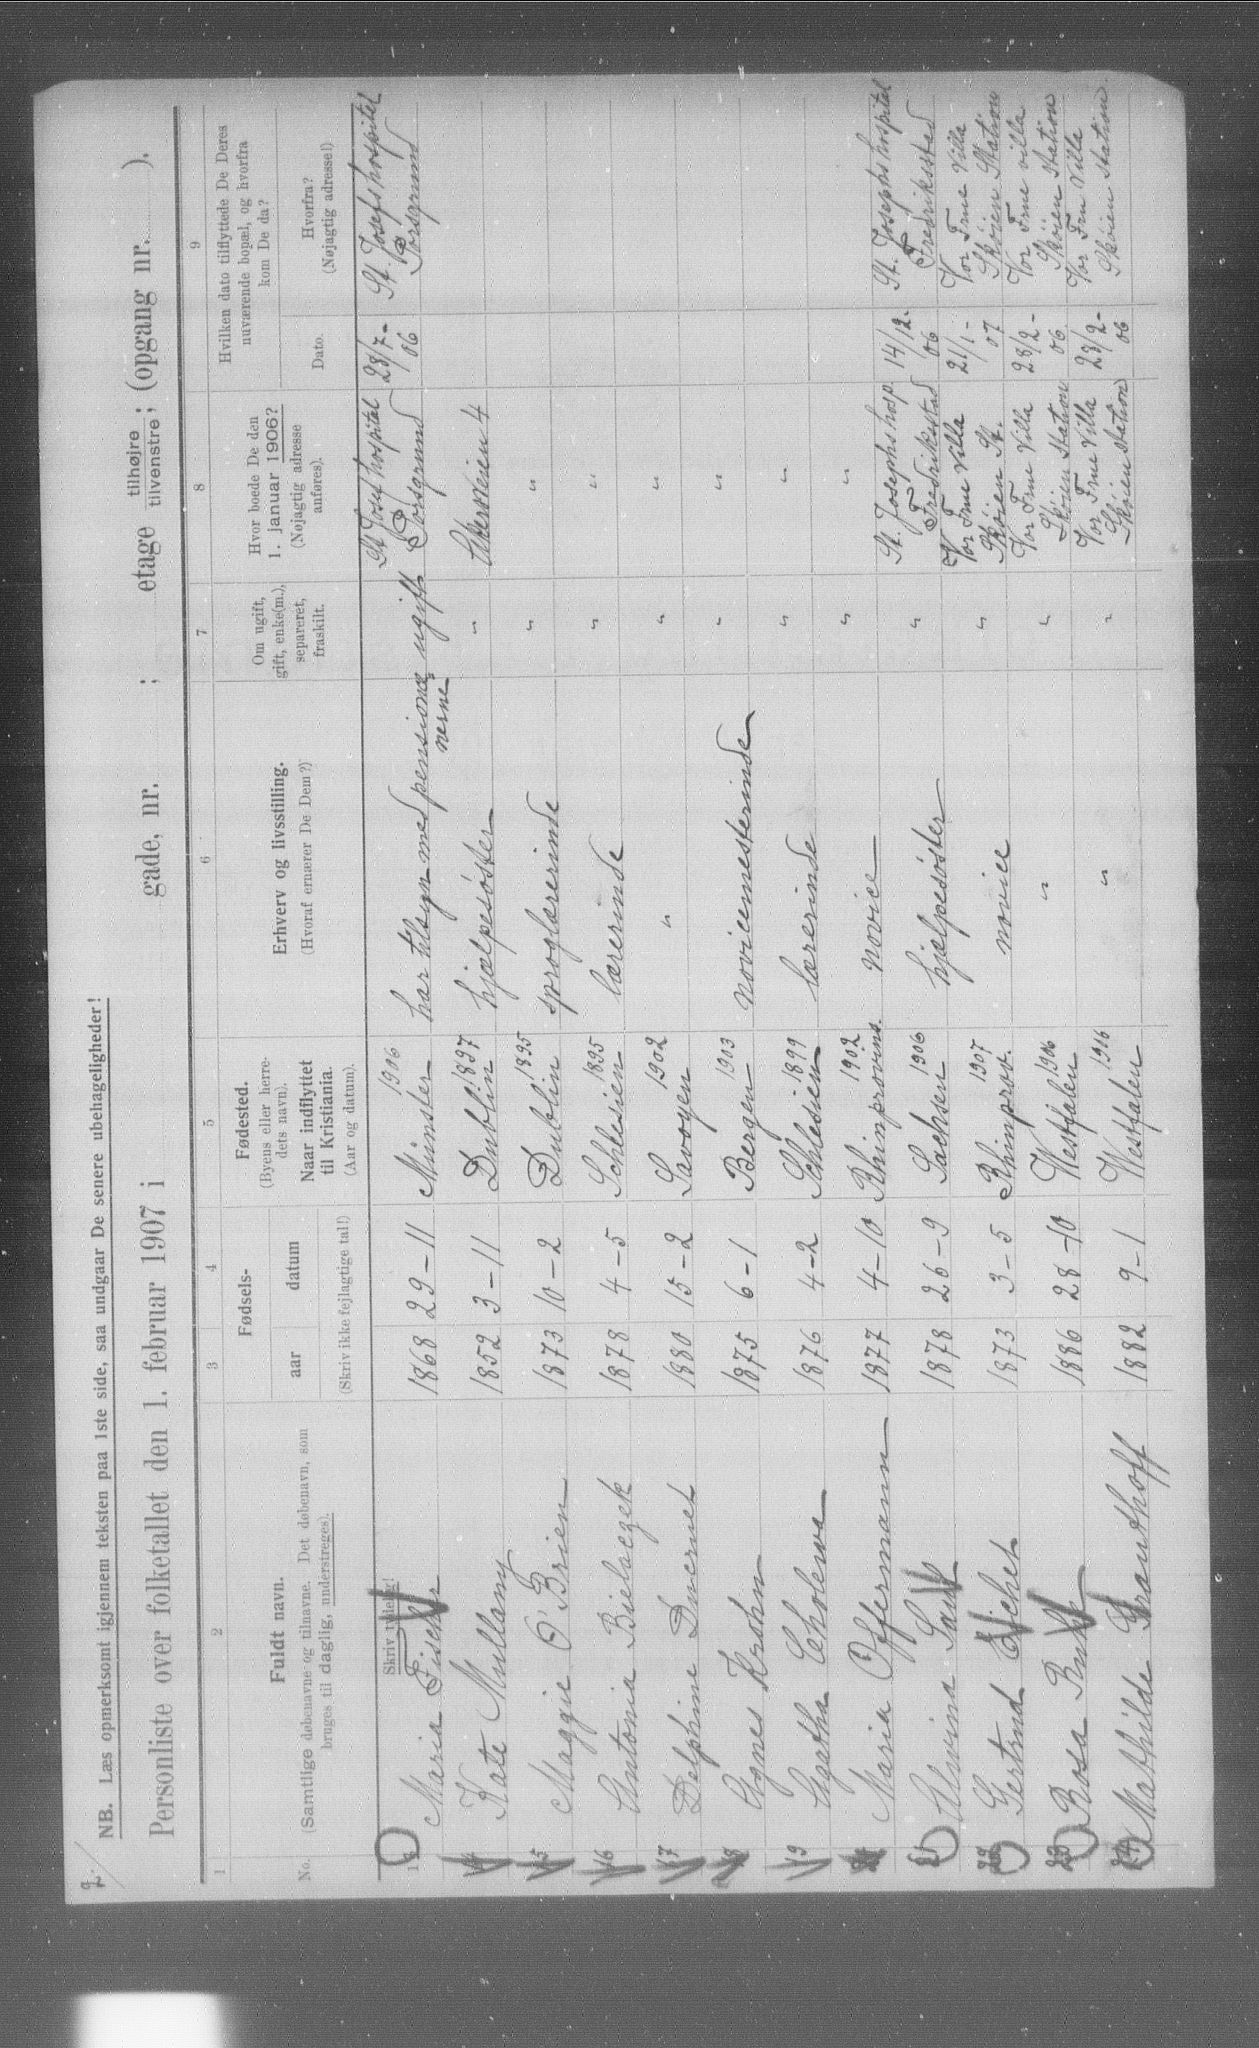 2.
NB. Læs opmerksomt igjennem teksten paa 1ste side, saa undgaar De senere ubehageligheder!
Personliste over folketallet den 1. februar 1907 i gade, nr. ; etage tilhøjre / tilvenstre; (opgang nr. ).
1 2 3 4 5 6 7 8 9
No.
Fuldt navn.
(Samtlige døbenavne og tilnavne. Det døbenavn, som
bruges til daglig, understreges).
Skriv tydelig!
Fødsels-
aar datum
(Skriv ikke fejlagtige tal!)
Fødested.
(Byens eller herre-
dets navn).
Naar indflyttet
til Kristiania.
(Aar og datum).
Erhverv og livsstilling.
(Hvoraf ernærer De Dem?)
Om ugift,
gift, enke(m.),
separeret,
fraskilt.
Hvor boede De den
1. januar 1906?
(Nøjagtig adresse
anføres).
Hvilken dato tilflyttede De Deres
nuværende bopæl, og hvorfra
kom De da?
Dato.
Hvorfra?
(Nøjagtig adresse!)
Maria Fischer 1868 29-11 Münster 1906 har tilsyn med pensionæ nerne ugift St Josef hospital Porsgrund 28/7-06 St. Josefs hospitel Porsgrund
14 Kate Mullany 1852 3-11 Dublin 1897 hjælpesøster " Akersveien 4
15 Maggie O'Brien 1873 10-2 Dublin 1895 sproglærerinde " "
16 Antonia Bielaczek 1878 4-5 Schlesien 1895 lærerinde " "
17 Delphine Ducruet 1880 15-2 Savoyen 1902 " " "
18 Agnes Krohn 1875 6-1 Bergen 1903 novicemesterinde " "
19 Agatha Cholewa 1876 4-2 Schlesien 1899 lærerinde " "
Maria Offermann 1877 4-10 Rhinprovins. 1902 novice " "
21 Alwina 1878 26-9 Sachsen 1906 hjælpesøster " St. Josephs hosp. Fredrikstad 14/12-06 St. Josephs hospital Fredriksstad
22 Gertrud Eichel 1873 3-5 Rhinprov. 1907 novice " Vor Frue Villa Skøien St. 21/1-07 Vor Frue Villa Skøien Station
23 Rosa 1886 28-10 Westfalen 1906 " " Vor Frue Villa Skøien Station 28/2-06 Vor Frue villa Skøien Station
24 Mathilde Grauthoff 1882 9-1 Westfalen 1906 " " Vor Frue Villa Skøien station 28/2-06 Vor Fru Villa Skøien station